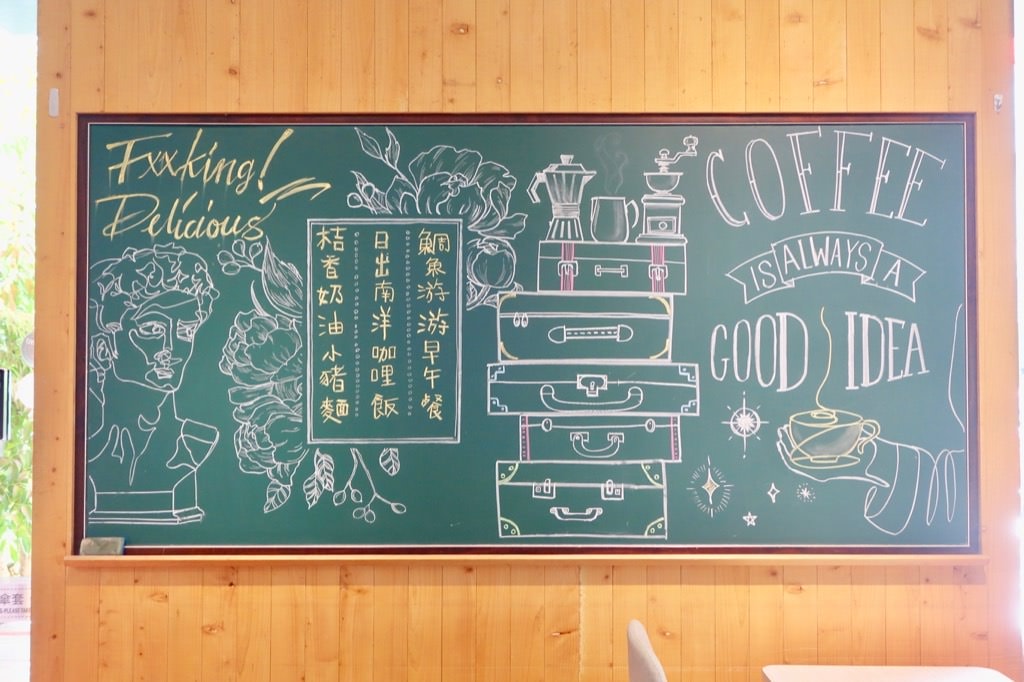 Fxxking!
Delicious
鯛魚游游早午餐
日出南洋咖哩飯
桔香奶油小豬麵
COFFEE
IS ALWAYS A
GOOD IDEA
傘套